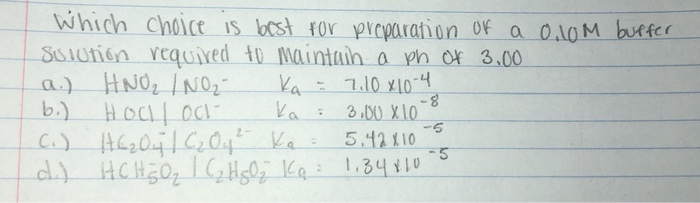 Which choice is best for preparation of a 0.10M buffer
solution required to maintain a ph of 3.00
a.) HNO₂ / NO₂⁻ Ka = 7.10 x10⁻⁴
b.) HOCl | OCl⁻ Ka = 3.00 x10⁻⁸
c.) HC₂O₄⁻ / C₂O₄²⁻ Ka = 5.42 x10⁻⁵
d.) HCH₅O₂ / C₂H₅O₂⁻ Ka = 1.34 x10⁻⁵